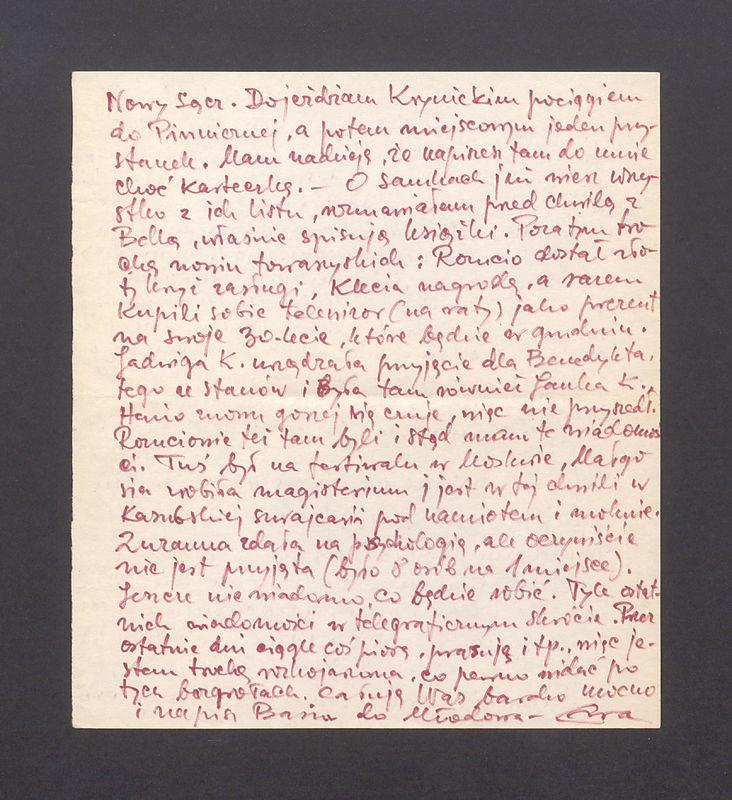 Nowy Sącz. Dojeżdżam Krynickim pociągiem
do Piwnicznej, a potem miejscowym jeden przy-
stanek. Mam nadzieję, że napiszesz tam do mnie
choć karteczkę. – O Samkach już wiesz wszy-
stko z ich listu, rozmawiałam przed chwilą z
Bellą, właśnie spisują książki. Poza tym tro-
chę nowin towarzyskich: Romcio dostał zło-
ty krzyż zasługi, Klecia nagrodę, a razem
kupili sobie telewizor (na raty) jako prezent
na swoje 30-lecie, które będzie w grudniu.
Jadwiga K. urządzała przyjęcie dla Benedykta,
tego ze Stanów i była tam również Janka K.,
Henio znowu gorzej się czuje, więc nie przyszedł.
Romciowie też tam byli i stąd mam te wiadomoś
ci. Tuś był na festiwalu w Moskwie, Małgo
sia zrobiła magisterium i jest w tej chwili w
Kaszubskiej Szwajcarii pod namiotem i moknie.
Zuzanna zdała na psychologię, ale oczywiście
nie jest przyjęta (było 8 osób na 1 miejsce).
Jeszcze nie wiadomo, co będzie robić. Tyle ostat-
nich wiadomości w telegraficznym skrócie. Przez
ostatnie dni ciągle coś piorę, prasuję itp., więc je-
stem trochę rozkojarzona, co pewno widać po
tych bazgrołach. Całuję Was bardzo mocno
i napisz Basiu do Młodowa – Ewa